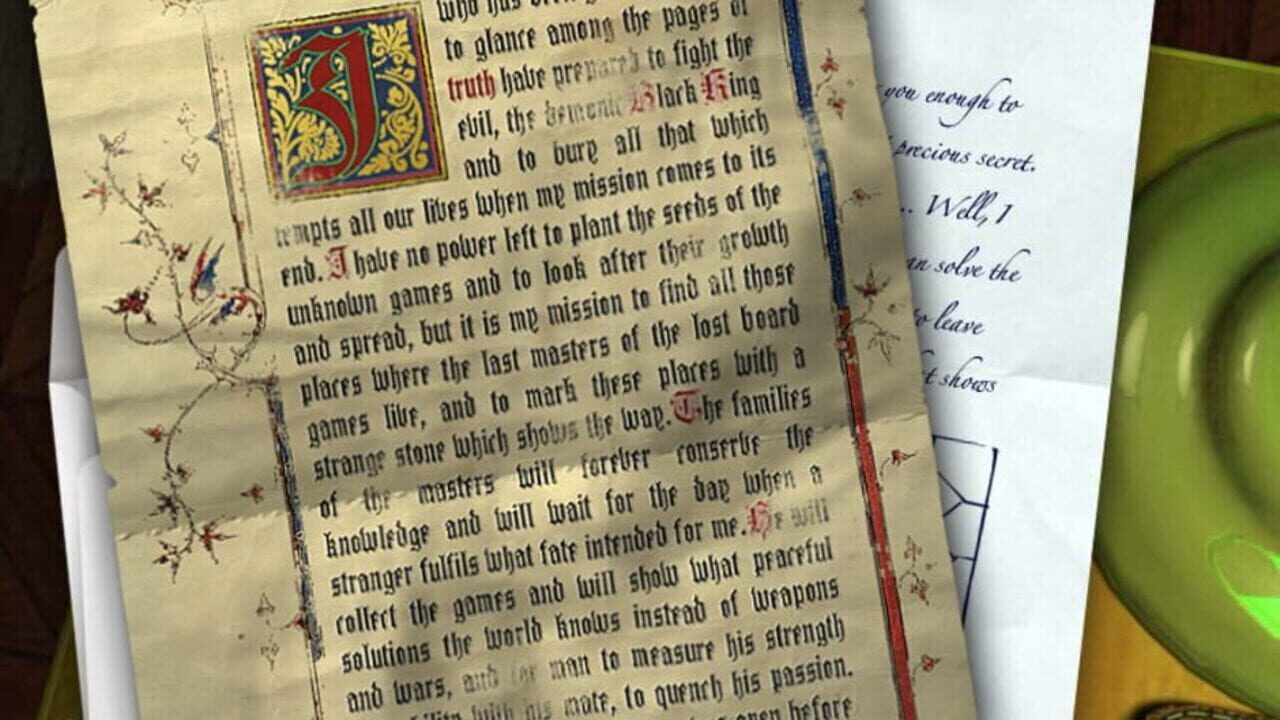 I who has been
to glance among the pages of
truth have prepared to fight the
evil, the demonic Black King
and to bury all that which
tempts all our lives when my mission comes to its
end. I have no power left to plant the seeds of the
unknown games and to look after their growth
and spread, but it is my mission to find all those
places where the last masters of the lost board
games live, and to mark these places with a
strange stone which shows the way. The families
of the masters will forever conserve the
knowledge and will wait for the day when a
stranger fulfils what fate intended for me. He will
collect the games and will show what peaceful
solutions the world knows instead of weapons
and wars, and for man to measure his strength
with his mate, to quench his passion.
open before
you enough to
precious secret.
... Well, I
can solve the
to leave
shows